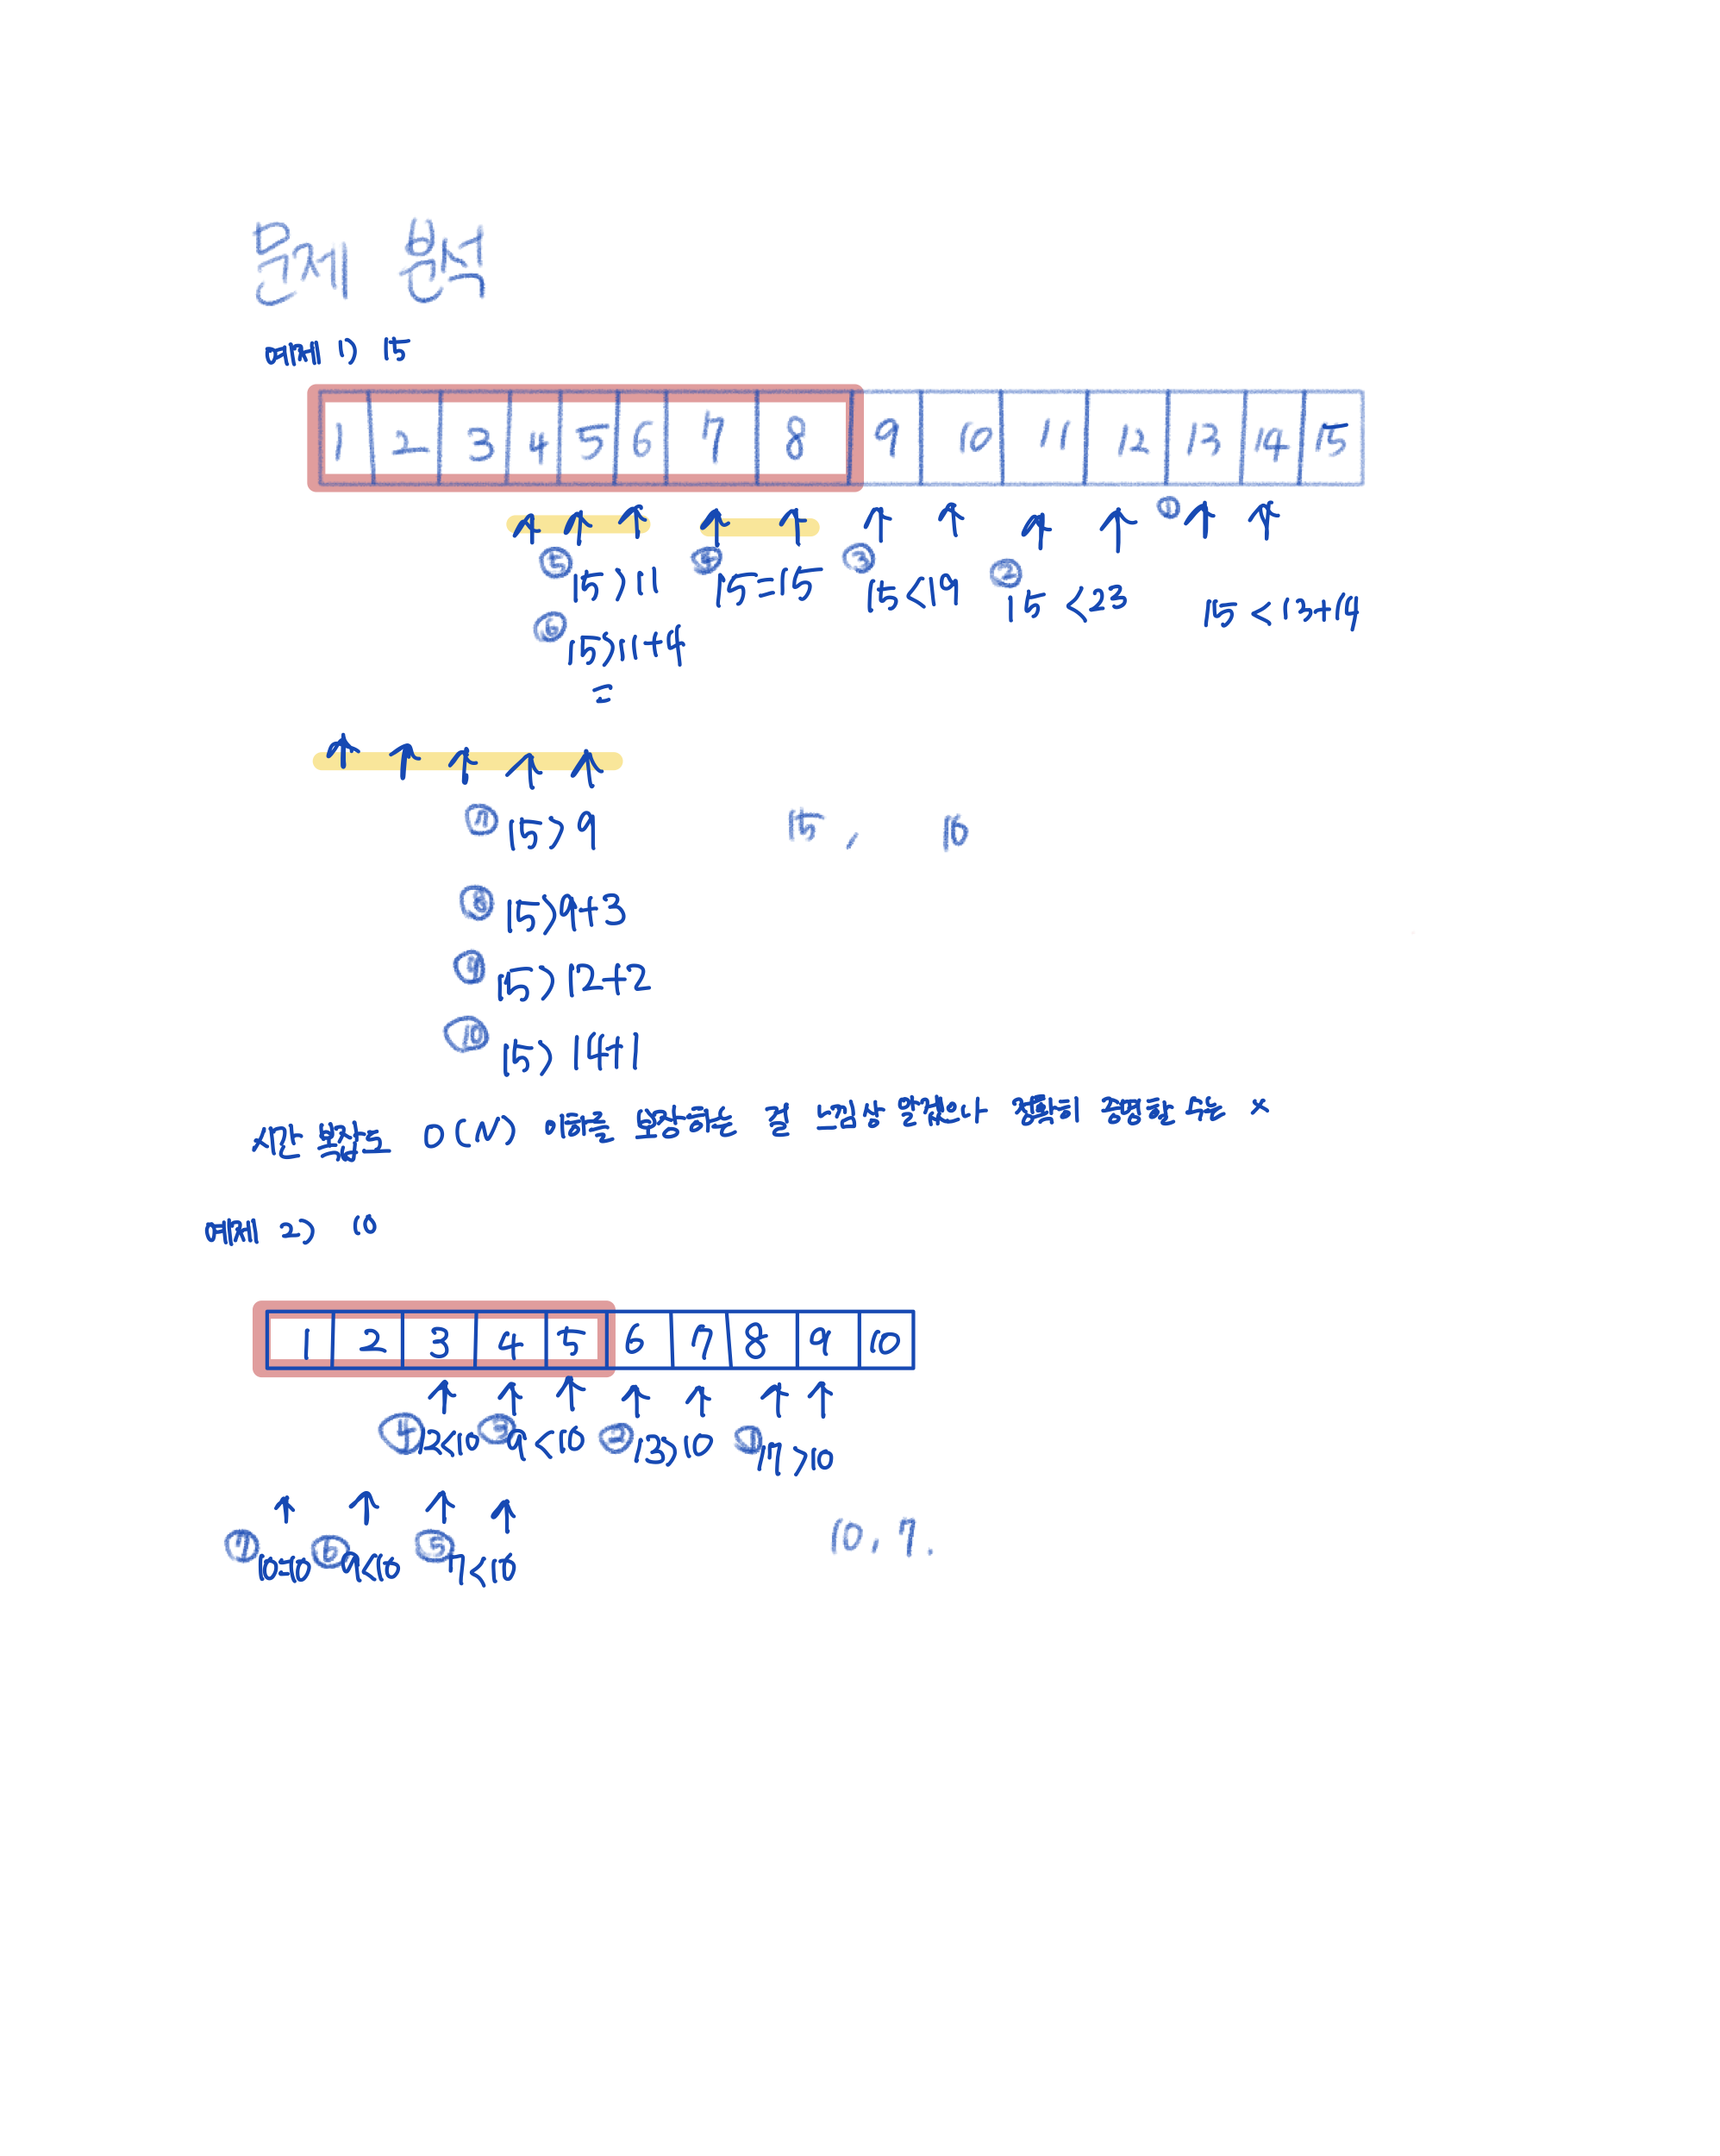 문제 분석
예제 1) 15
1 2 3 4 5 6 7 8 9 10 11 12 13 14 15
①
⑤ 15>11 ④ 15=15 ③ 15<19 ② 15<23 15<13+14
⑥ 15>11+4
=
⑦ 15>9 15, 10
⑧ 15>9+3
⑨ 15>12+2
⑩ 15>14+1
시간 복잡도 O(N) 이하를 보장하는 걸 느낌상 알겠으나 정확히 증명할 수는 x
예제 2) 10
1 2 3 4 5 6 7 8 9 10
④ 12<10 ③ 9<10 ② 13>10 ① 17>10
⑦ 10=10 ⑥ 9<10 ⑤ 7<10 10, 7.